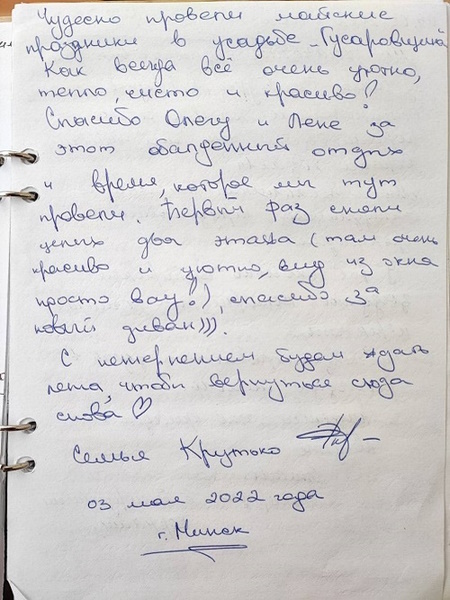 Чудесно провели майские
праздники в усадьбе „Гусаровщина"
Как всегда всё очень уютно,
тепло, чисто и красиво!
Спасибо Олегу и Лене за
этот обалденный отдых
и время, которое мы тут
провели. Первый раз сняли
целых два этажа (там очень
красиво и уютно, вид из окна
просто вау!), спасибо за
новый диван))).
С нетерпением будем ждать
лета, чтобы вернуться сюда
снова ♡
Семья Крутько
03 мая 2022 года
г. Минск